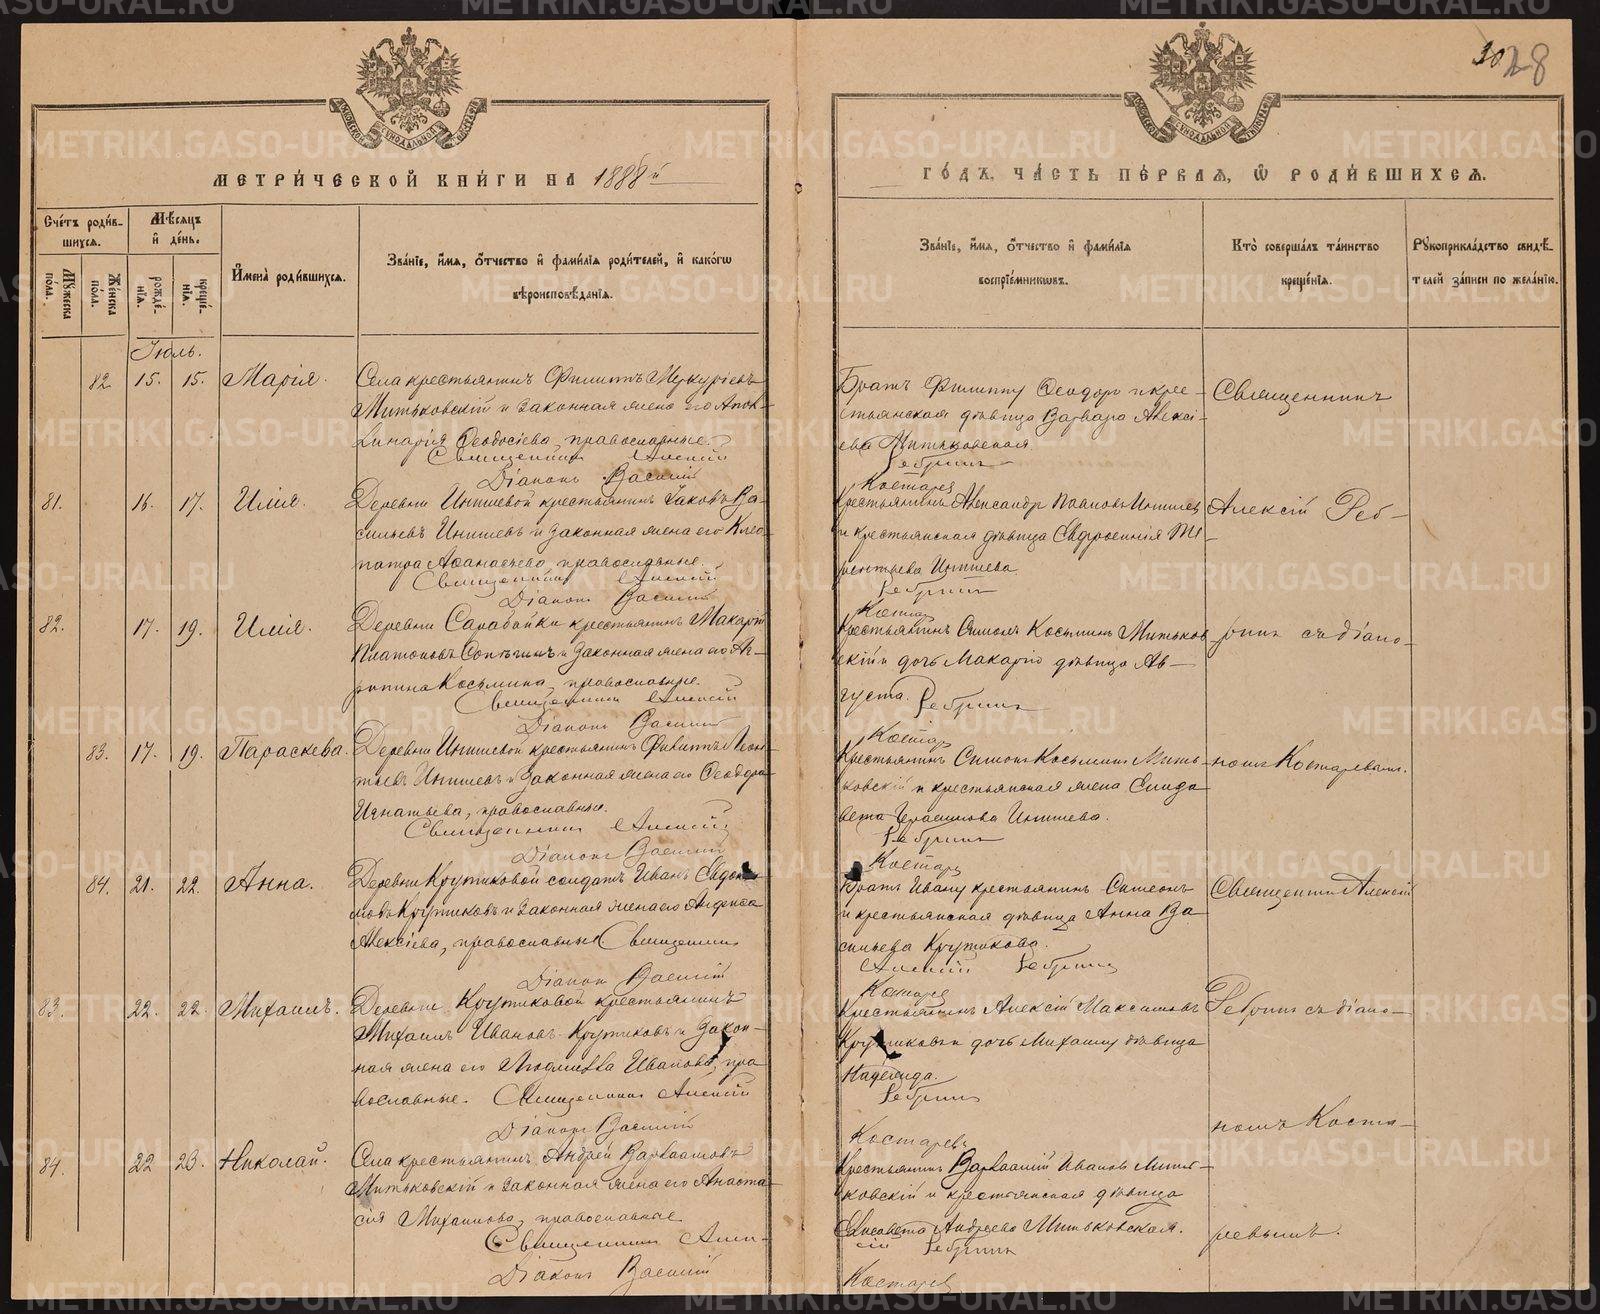 30 28
МЕТРИ́ЧЕСКОЙ КНИ́ГИ НА 1888й
ГО́ДЪ, ЧА́СТЬ ПЕ́РВАЯ, Ѿ РОДИ́ВШИХСЯ.
Сче́тъ роди́вшихся.
Мѣ́сяцъ и де́нь.
Мꙋ́жеска по́ла.
Же́нска по́ла.
рожде́нїя.
креще́нїя.
Имена̀ роди́вшихся.
Зва́нїе, и́мя, ѻ́тчество и фами́лїя роди́телей, и како́гѡ вѣроисповѣ́данїя.
Зва́нїе, и́мя, ѻ́тчество и фами́лїя воспрїе́мникѡвъ.
Кто̀ соверша́лъ та́инство креще́нїя.
Рꙋкоприкла́дство свидѣ́телей за́писи по жела́нїю.
Іюль.
82. 15. 15. Марія.
Села крестьянинъ Филиппъ Меркуріевъ
Митьковскій и законная жена его Апол-
линарія Ѳеодосіева, православные.
Священникъ Алексій
Діаконъ Василій
Братъ Филиппу Ѳеодоръ и крес-
тьянская дѣвица Варвара Алексі-
ева Митьковская
Ребринъ
Костарев
Священникъ
81. 16. 17. Илія.
Деревни Инишевой крестьянинъ Іаковъ Ва-
сильевъ Инишевъ и законная жена его Клео-
патра Аѳанасьева, православные.
Священникъ Алексій
Діаконъ Василій
Крестьянинъ Александръ Инишев
и крестьянская дѣвица Евфросинія Те-
рентьева Инишева.
Ребринъ
Костар
Алексій Реб-
82. 17. 19. Илія.
Деревни Сарабайки крестьянинъ Макарій
Платоновъ и законная жена его Аг-
рипина Косьмина, православные.
Священникъ Алексій
Діаконъ Василій
Крестьянинъ Симонъ Косьминъ Митьков-
скій и дочь Макарію дѣвица Ав-
густа.
Ребринъ
Костар
ринъ съ діако-
83. 17. 19. Параскева.
Деревни Инишевой крестьянинъ Филиппъ Леон-
тьевъ Инишевъ и законная жена его Ѳеодора
Игнатьева, православные.
Священникъ Алексій
Діаконъ Василій
Крестьянинъ Симонъ Косьминъ Мить-
ковскій и крестьянская жена Елиса-
вета Герасимова Инишева.
Ребринъ
Костарь
номъ Костаревымъ.
84. 21. 22. Анна.
Деревни Крутиковой солдатъ Иванъ Евдоки-
мовъ Крутиковъ и законная жена его Анфиса
Алексіева, православные Священникъ
Діаконъ Василій
Братъ Ивану крестьянинъ Симеонъ
и крестьянская дѣвица Анна Ва-
сильева Крутикова.
Алексій Ребринъ
Костарев
Священникъ Алексій
83. 22. 22. Михаилъ.
Деревни Крутиковой крестьянинъ
Михаилъ Ивановъ Крутиковъ и закон-
ная жена его Людмилла Иванова, пра-
вославные. Священникъ Алексій
Діаконъ Василій
Крестьянинъ Алексій Максимовъ
Крутиковъ и дочь Михаилу дѣвица
Надежда.
Ребринъ
Костаревъ
Ребринъ съ діако-
номъ Коста-
84. 22 23. Николай.
Села крестьянинъ Андрей Варлаамовъ
Митьковскій и законная жена его Анаста-
сія Михаилова, православные
Священникъ Алек-
Діаконъ Василій
Крестьянинъ Варлаамій Ивановъ Мить-
ковскій и крестьянская дѣвица
Елисавета Андреева Митьковская.
сій Ребринъ
Костарев
ревымъ.
METRIKI.GASO-URAL.RU